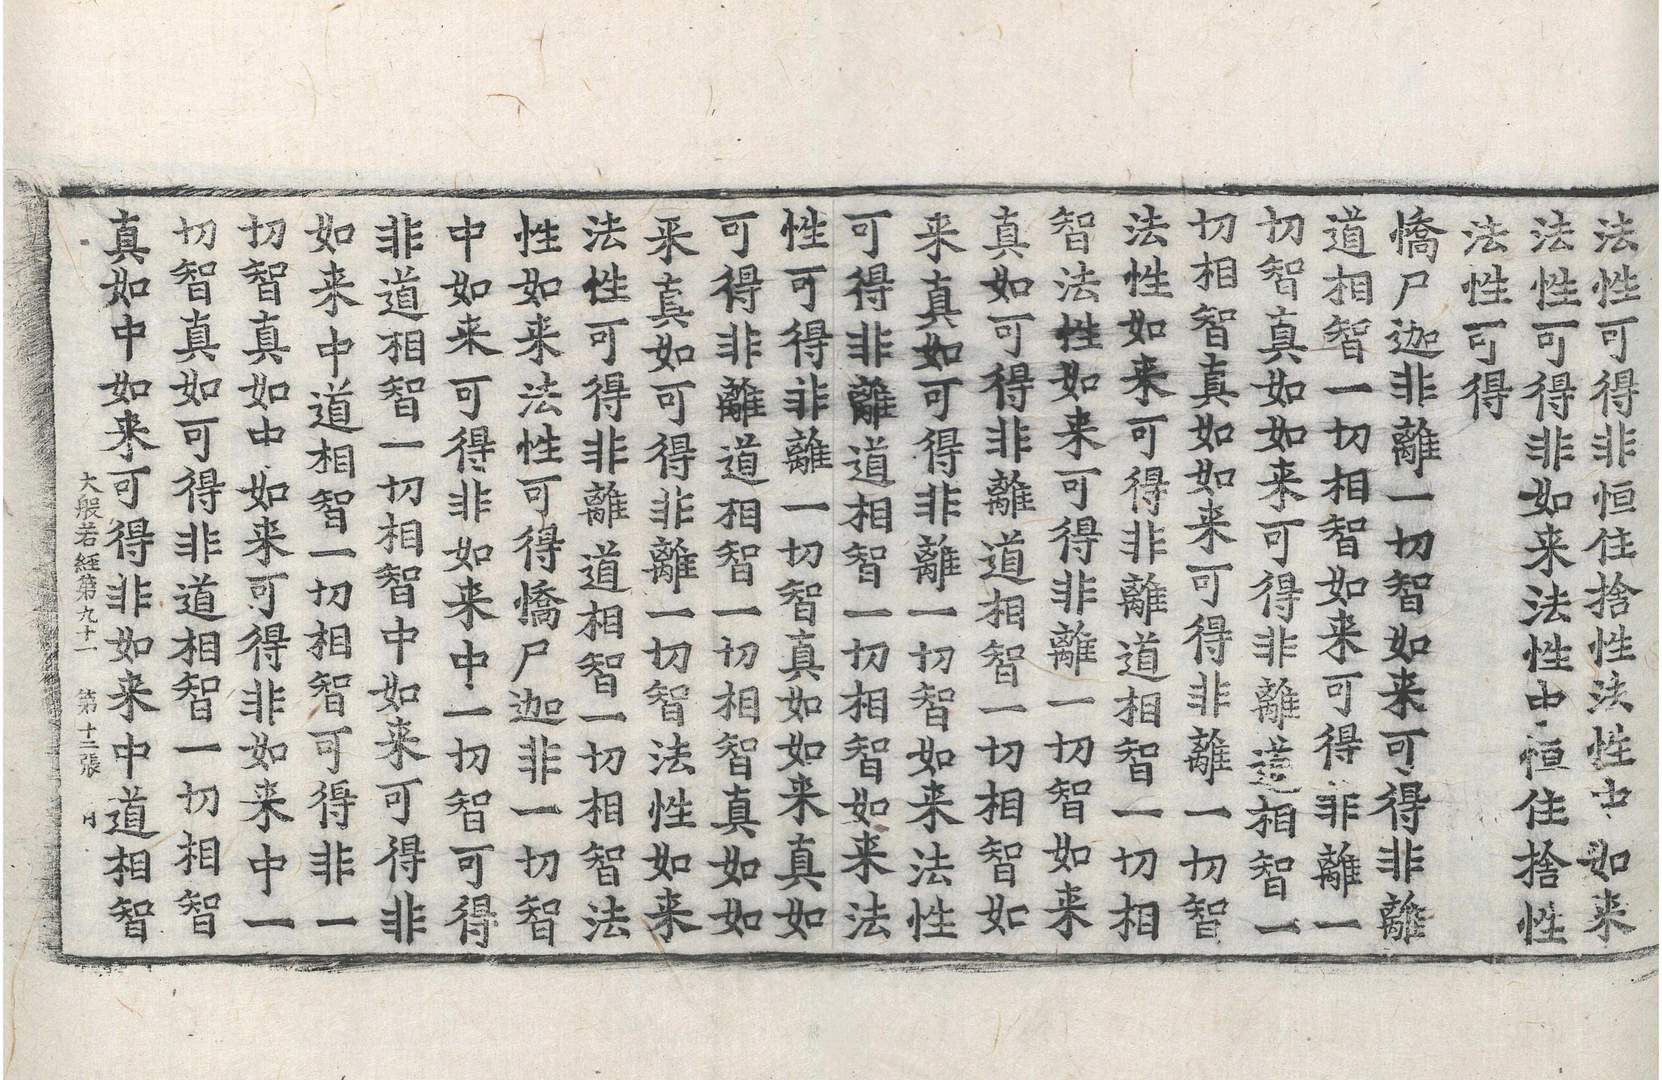 法性可得非恒住捨性法性中如来
法性可得非如来法性中恒住捨性
法性可得
憍尸迦非離一切智如来可得非離
道相智一切相智如来可得非離一
切智真如如来可得非離道相智一
切相智真如如来可得非離一切智
法性如来可得非離道相智一切相
智法性如来可得非離一切智如来
真如可得非離道相智一切相智如
来真如可得非離一切智如来法性
可得非離道相智一切相智如来法
性可得非離一切智真如如来真如
可得非離道相智一切相智真如如
来真如可得非離一切智法性如来
法性可得非離道相智一切相智法
性如来法性可得憍尸迦非一切智
中如来可得非如来中一切智可得
非道相智一切相智中如来可得非
如来中道相智一切相智可得非一
切智真如中如来可得非如来中一
切智真如可得非道相智一切相智
真如中如来可得非如来中道相智
大般若経第九十一 第十二張 月